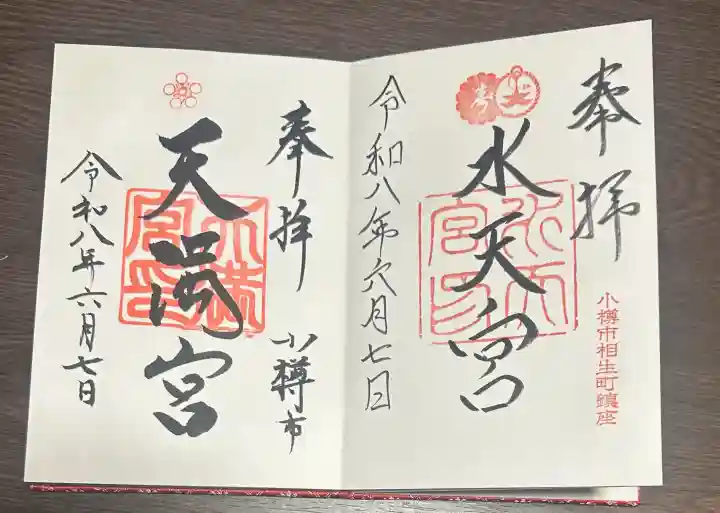 奉拝
水天宮
小樽市相生町鎮座
令和八年六月七日
奉拝
小樽市
天満宮
令和八年六月七日